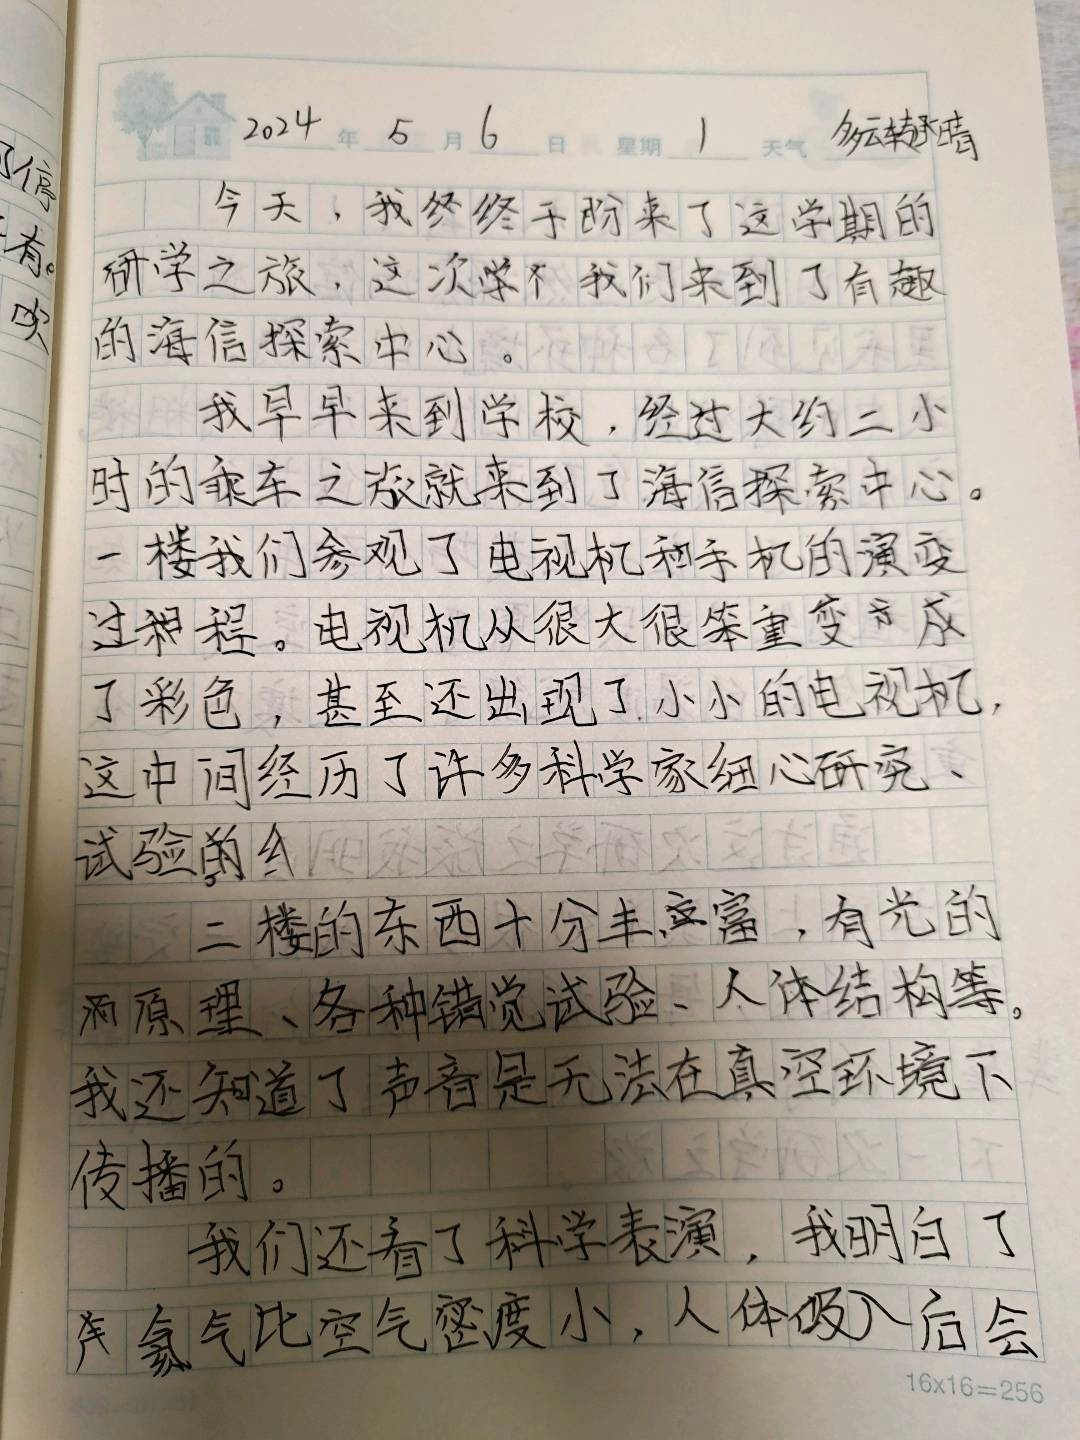 2024年 5月 6日 星期 1 天气 多云转晴
今天，我终终于盼来了这学期的
研学之旅，这次学不我们来到了有趣
的海信探索中心。
我早早来到学校，经过大约二小
时的乘车之旅就来到了海信探索中心。
一楼我们参观了电视机和手机的演变
过程程。电视机从很大很笨重变成
了彩色，甚至还出现了小小的电视机，
这中间经历了许多科学家细心研究、
试验的。
二楼的东西十分丰富，有光的
原理、各种错觉试验、人体结构等。
我还知道了声音是无法在真空环境下
传播的。
我们还看了科学表演，我明白了
氦气比空气密度小，人体吸入后会
16x16=256
停
有。
吹